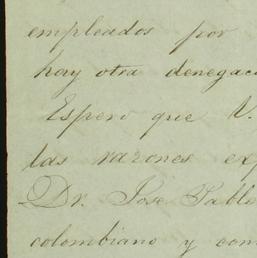 empleados por
hay otra denegac
Espero que V.
las razones exp
Dr. Jose Pablo
colombiano y com